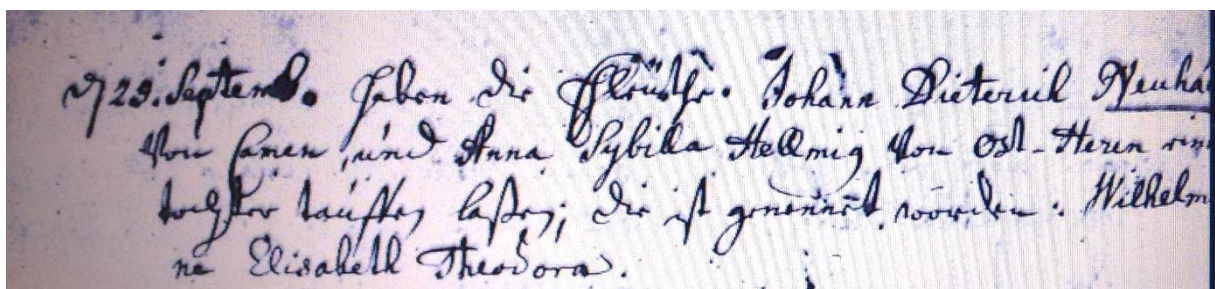 d 29. Septemb. haben die Eheleüthe. Johann Dieterich Neuha
Von Camen, und Anna Sybilla Hellmig Von Ost-Heren ein
tochter tauffen laßen; die ist genennet worden: Wilhelm
ne Elisabeth Theodora.